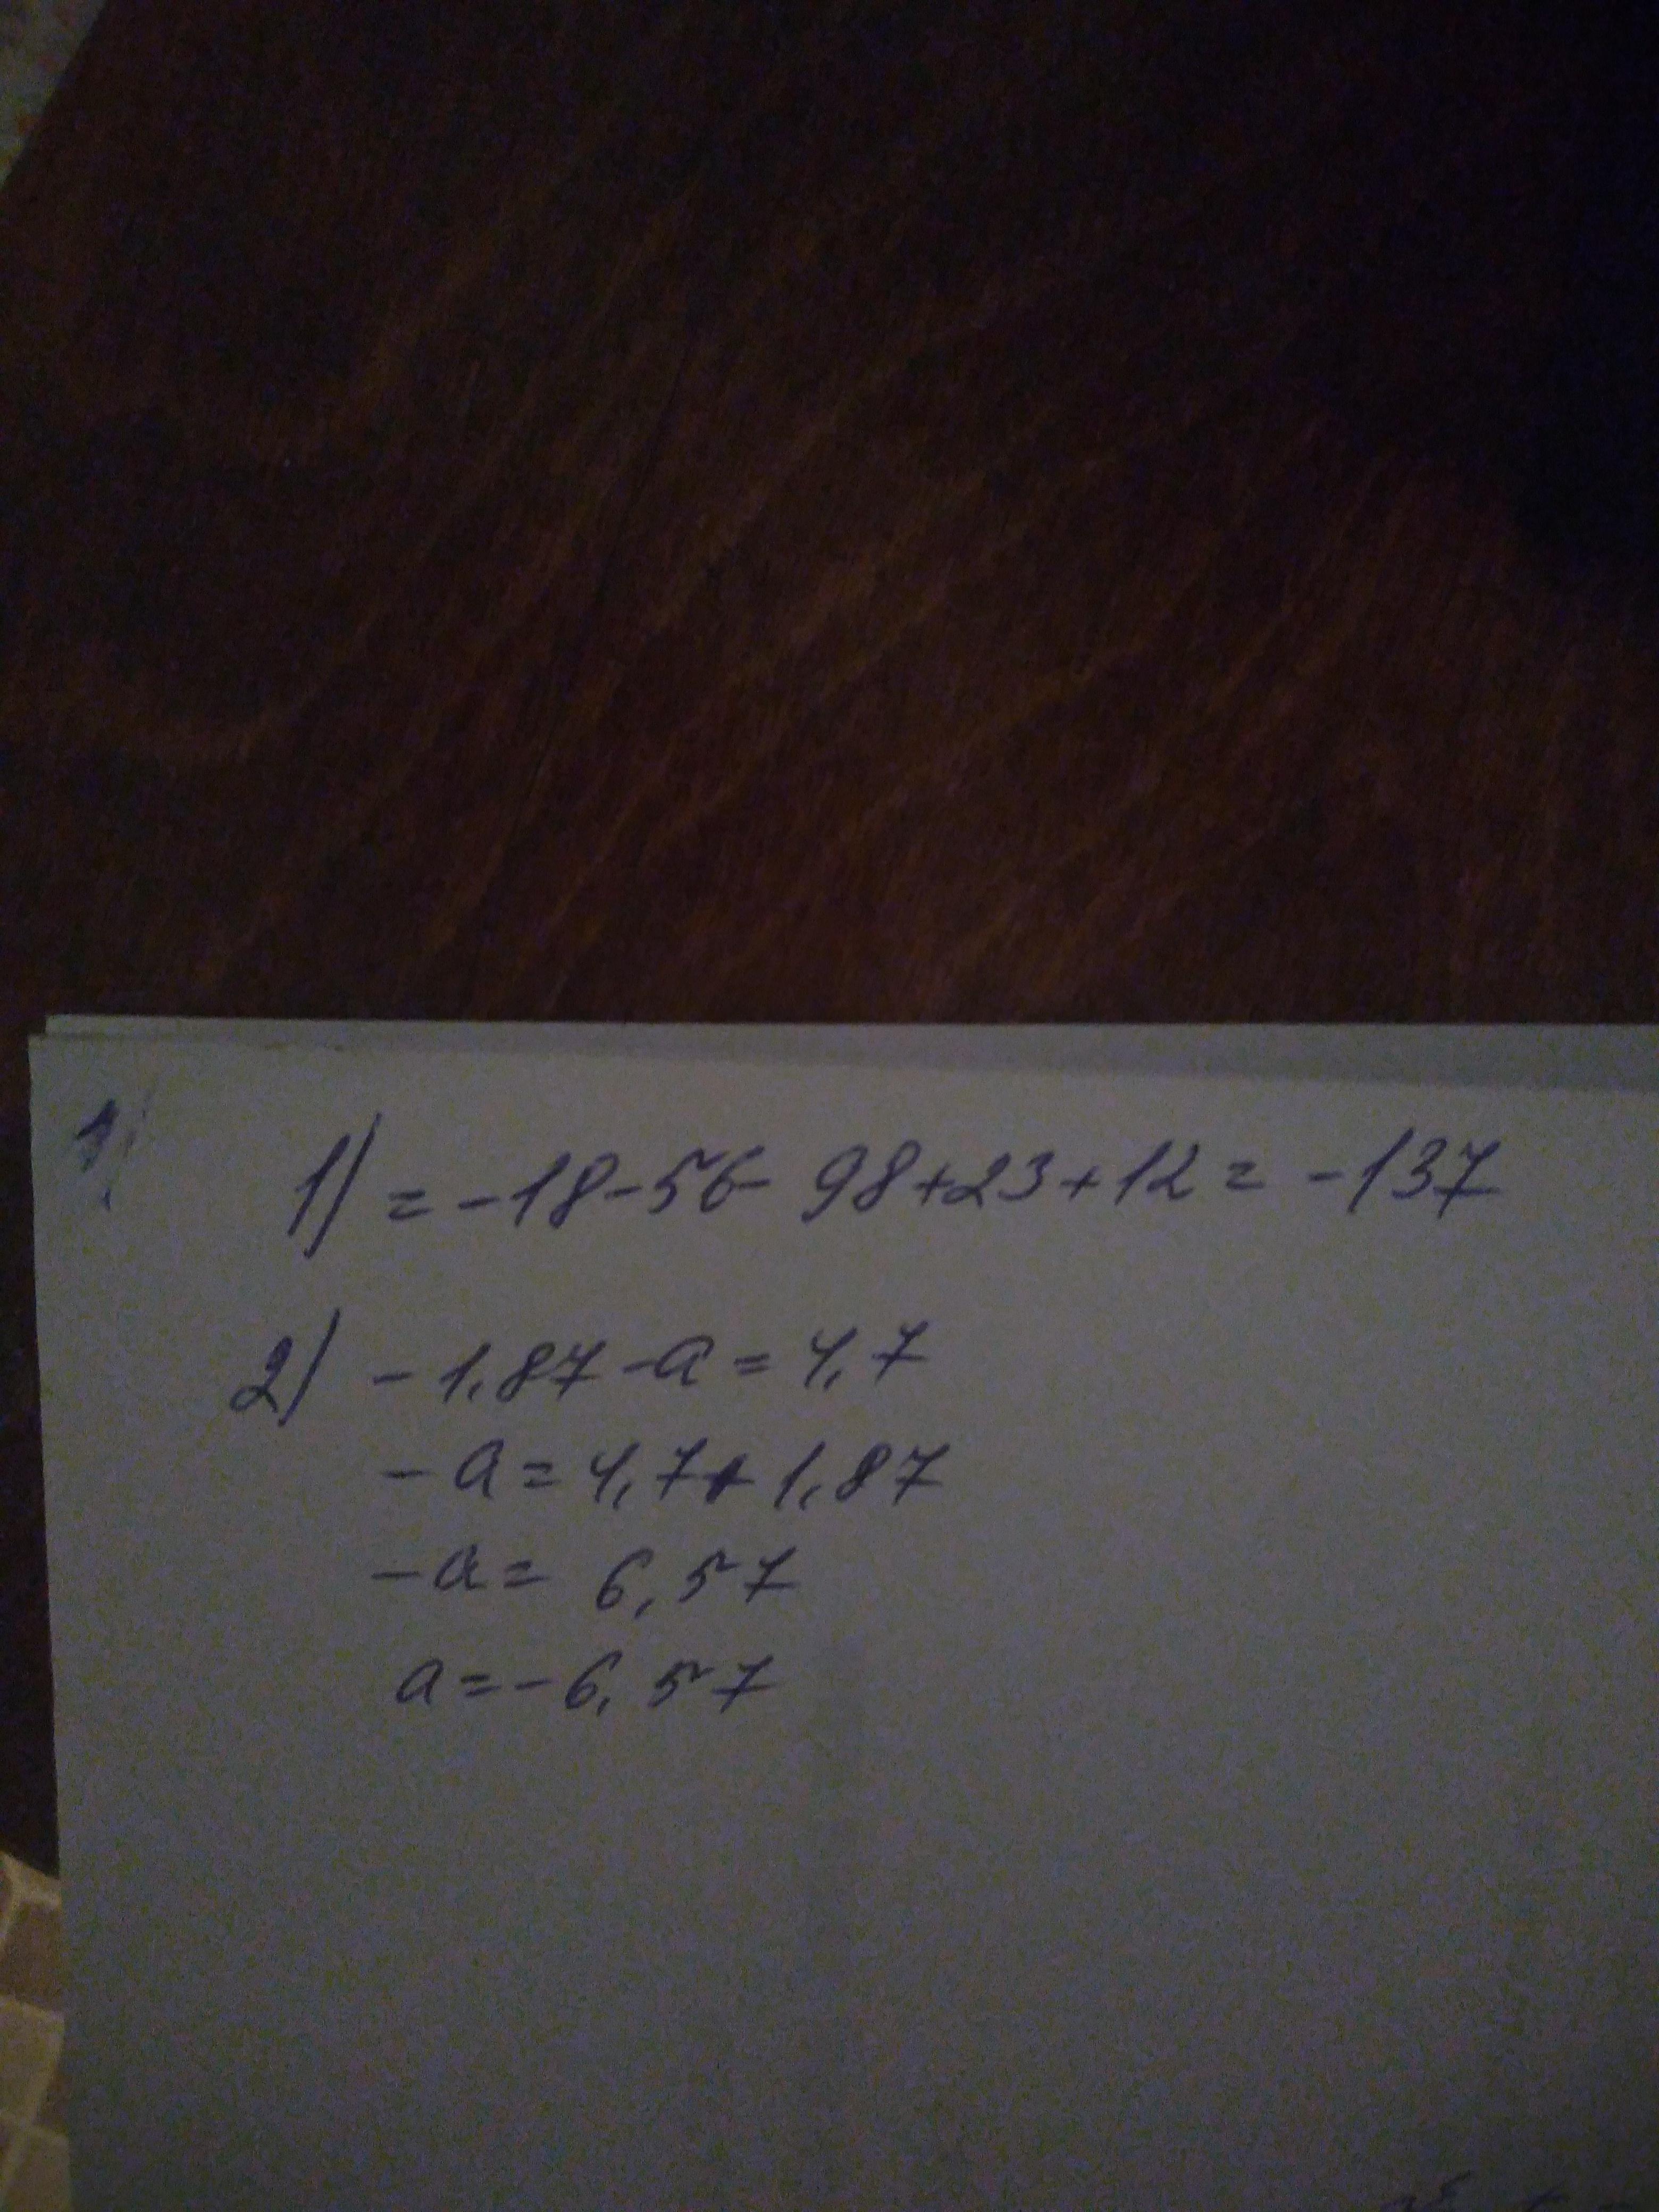 1) = -18-56- 98+23+12 = -137
2) -1,87-a = 4,7
-a = 4,7+1,87
-a = 6,57
a = -6,57